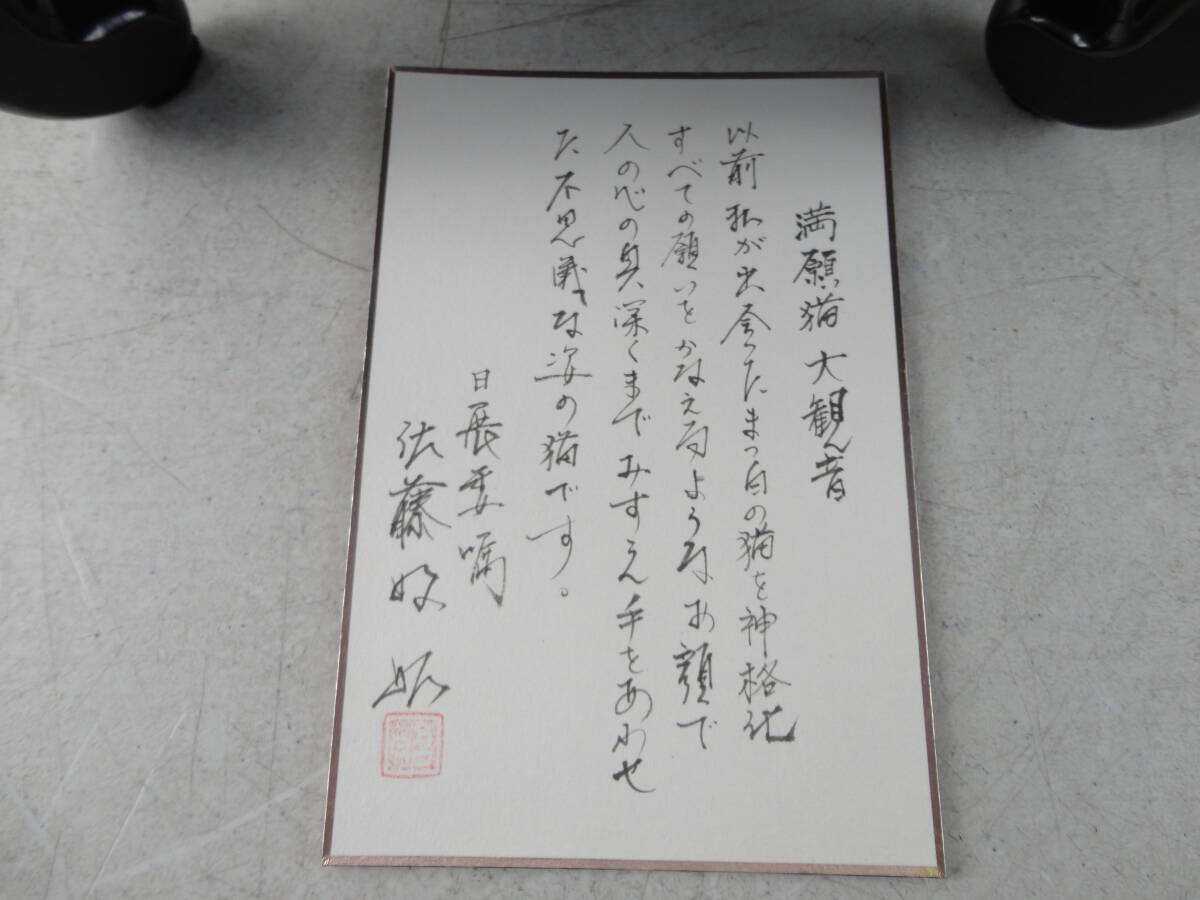 満願猫 大観音
以前 私が出会ったまっ白の猫を神格化
すべての願いをかなえるようなお顔で
人の心の奥深くまでみすえ手をあわせ
た不思議な姿の猫です。
日展委嘱
佐藤